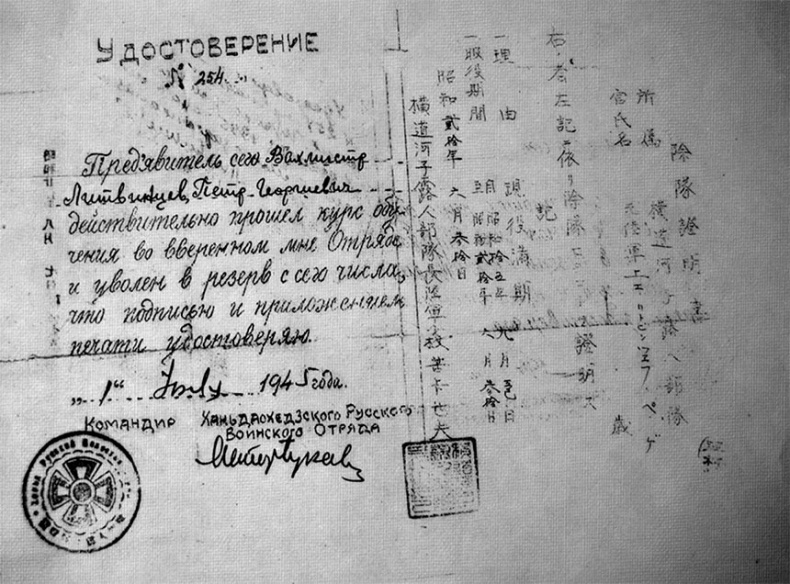 Удостоверение
№ 254.
Предявитель сего Вахмистр
Литвинцев, Петр Георгиевич
действительно прошел курс обу-
чения во вверенном мне Отряде
и уволен в резерв с сего числа,
что подписью и приложением
печати удостоверяю.
„1“ Июля 1945 года.
Командир Ханьдаохедзского Русского
Воинского Отряда
除隊證明書
所属 横道河子露人部隊
官氏名
右ノ者左記ニ依リ除隊 證明ス
記
一理由 現役満期
一服役期間 自昭和十五年九月
至昭和貳拾年六月参拾日
昭和貳拾年六月参拾日
横道河子露人部隊長陸軍少校